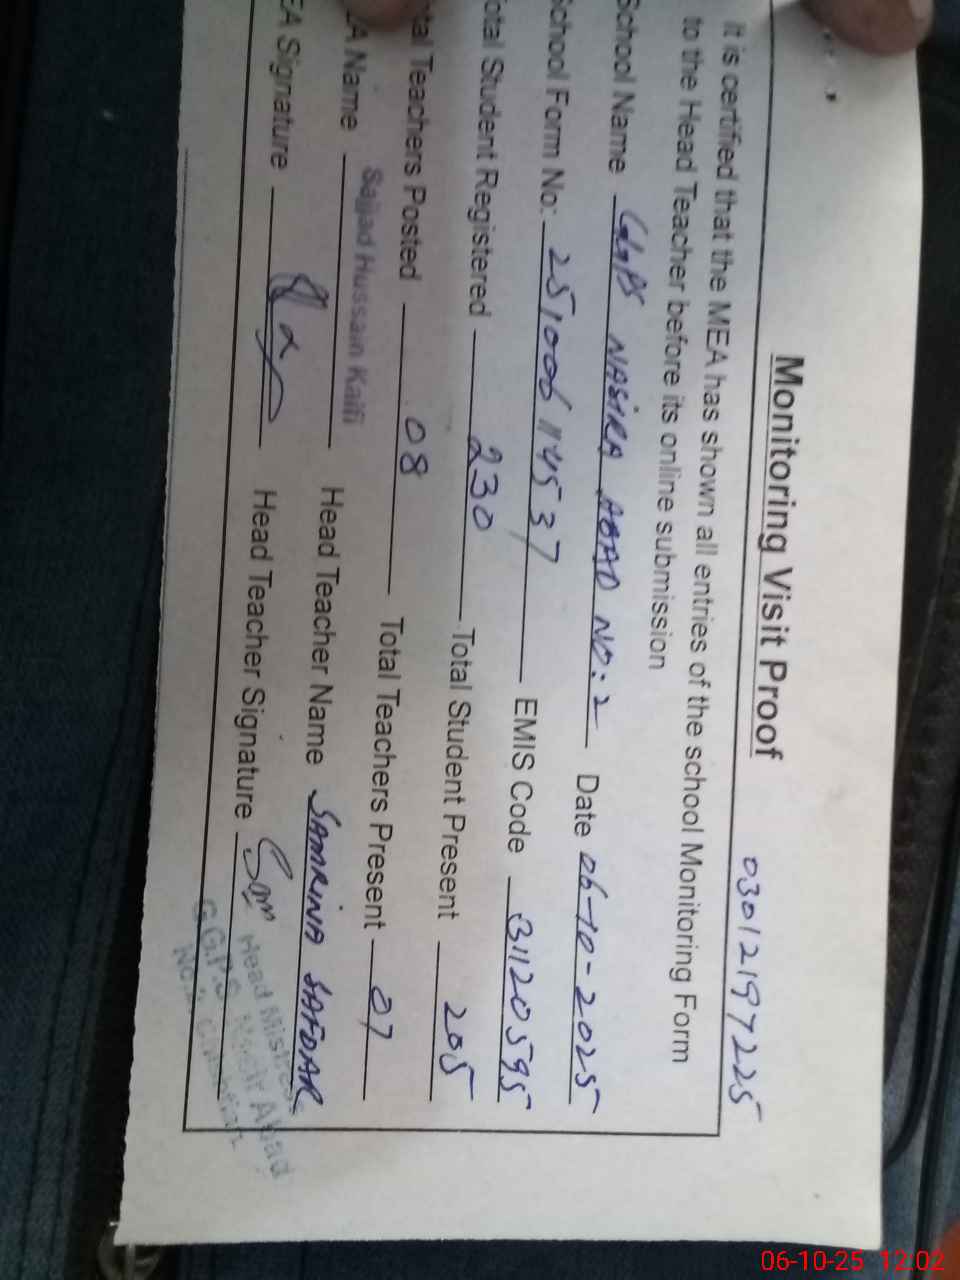 Monitoring Visit Proof
03012197225
It is certified that the MEA has shown all entries of the school Monitoring Form
to the Head Teacher before its online submission
School Name GGPS NASIRA ABAD NO: 2 Date 06-10-2025
School Form No: 251006114537 EMIS Code 31120595
Total Student Registered 230 Total Student Present 205
tal Teachers Posted 08 Total Teachers Present 07
EA Name Sajjad Hussain Kaifi Head Teacher Name SAMRINA SAFDAR
EA Signature Head Teacher Signature
Head Mistress
G.G.P.S Nasir Abad
No.2
06-10-25 12:02